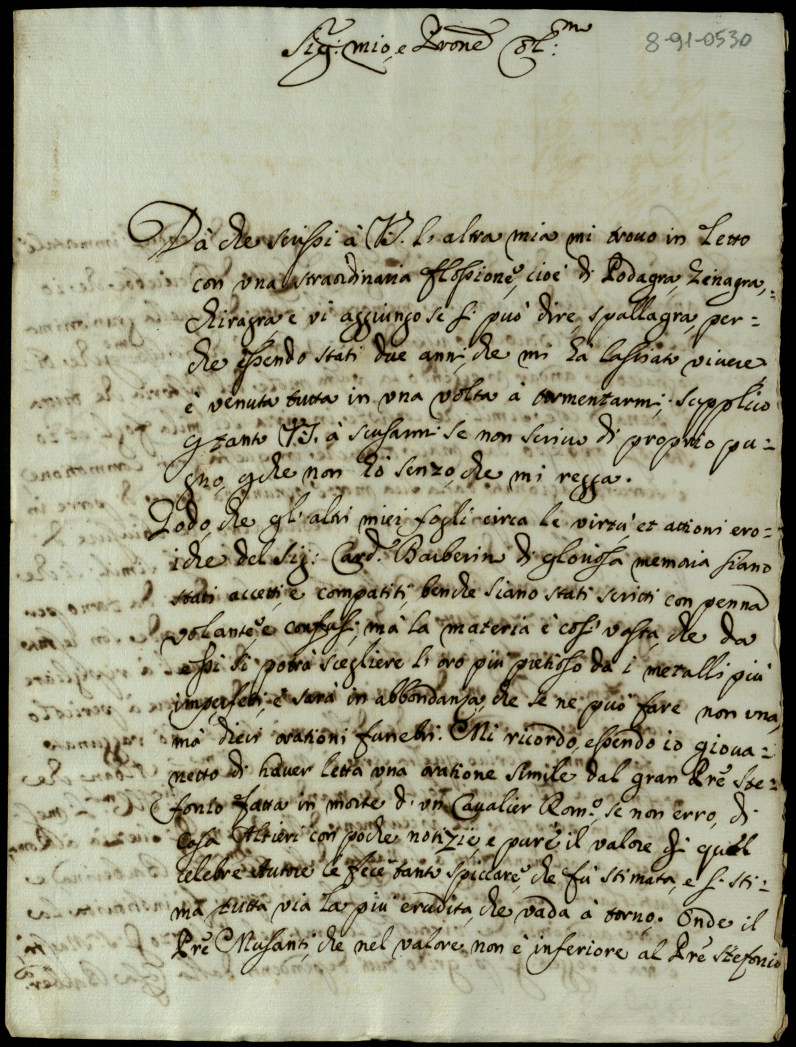 8-91-0530
Sig:r mio, e Prone Col:mo
Dà che scrissi à V.S. l'altra mia mi trovo in Letto
con una straordinaria flossione, cioè di Podagra, Zenagra,
Chiragra, e vi aggiungo se si può dire, spallagra, per-
che essendo stati due anni, che mi hà lasciato vivere
è venuta tutta in una volta à tormentarmi; supplico
p tanto V.S. à scusarmi se non scrivo di proprio pu-
gno, pche non hò senzo, che mi regga.
Lodo, che gl'altri miei fogli circa le virtù, et attioni ero-
iche del Sig: Card. Barberin di gloriosa memoria siano
stati accetti, e compatiti, benche siano stati scritti con penna
volante, e confusi, mà la materia è così vasta, che da
essi si potrà scegliere l'oro più pretioso da i metalli più
imperfetti, e sarà in abbondanza, che se ne può fare non una,
mà dieci orationi funebri. Mi ricordo, essendo io giova-
netto di haver letta una oratione simile dal gran Pre Ste-
fonio fatta in morte d'un Cavalier Rom:o, se non erro, di
Casa Altieri con poche notizie, e pure il valore di quel
celebre Autore le fece tanto spiccare, che fù stimata, e si sti-
ma tutta via la più erudita, che vada à torno. Onde il
Pre Musanti, che nel valore non è inferiore al Pre Stefonio